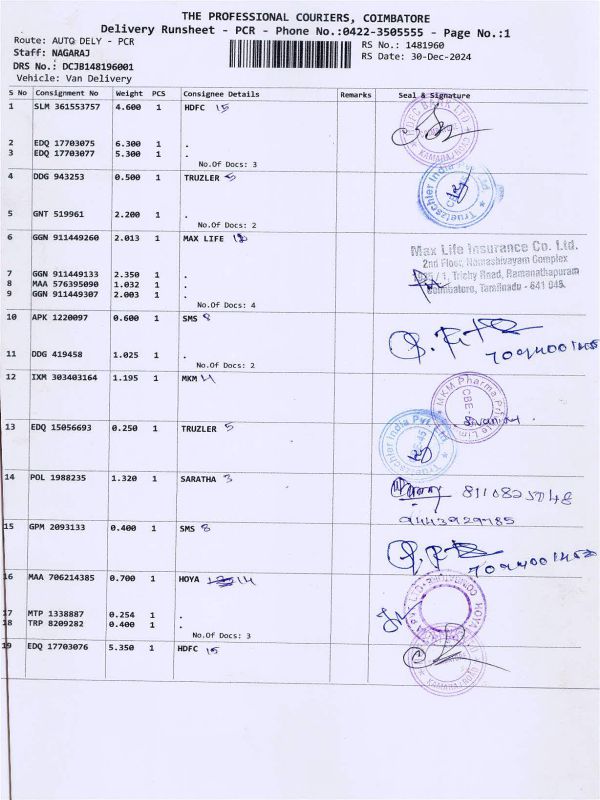 THE PROFESSIONAL COURIERS, COIMBATORE
Delivery Runsheet - PCR - Phone No.:0422-3505555 - Page No.:1
Route: AUTO DELY - PCR
RS No.: 1481960
Staff: NAGARAJ
RS Date: 30-Dec-2024
DRS No.: DCJB148196001
Vehicle: Van Delivery
S No Consignment No Weight PCS Consignee Details Remarks Seal & Signature
1 SLM 361553757 4.600 1 HDFC 15
KAMARAJ ROAD
2 EDQ 17703075 6.300 1 .
3 EDQ 17703077 5.300 1 .
No.Of Docs: 3
4 DDG 943253 0.500 1 TRUZLER 5
Truetzschler India Pvt. Ltd
5 GNT 519961 2.200 1 .
No.Of Docs: 2
6 GGN 911449260 2.013 1 MAX LIFE
Max Life Insurance Co. Ltd.
2nd Floor, Namashivayam Complex
/ 1, Trichy Road, Ramanathapuram
Coimbatore, Tamilnadu - 641 045.
7 GGN 911449133 2.350 1 .
8 MAA 576395090 1.032 1 .
9 GGN 911449307 2.003 1 .
No.Of Docs: 4
10 APK 1220097 0.600 1 SMS 8
11 DDG 419458 1.025 1 .
No.Of Docs: 2
12 IXM 303403164 1.195 1 MKM 4
MKM Pharma Private Limited
CBE
13 EDQ 15056693 0.250 1 TRUZLER 5
Truetzschler India Pvt. Ltd
14 POL 1988235 1.320 1 SARATHA 3
9443929785
15 GPM 2093133 0.400 1 SMS 8
16 MAA 706214385 0.700 1 HOYA 14
17 MTP 1338887 0.254 1 .
18 TRP 8209282 0.400 1 .
No.Of Docs: 3
19 EDQ 17703076 5.350 1 HDFC 15
KAMARAJ ROAD